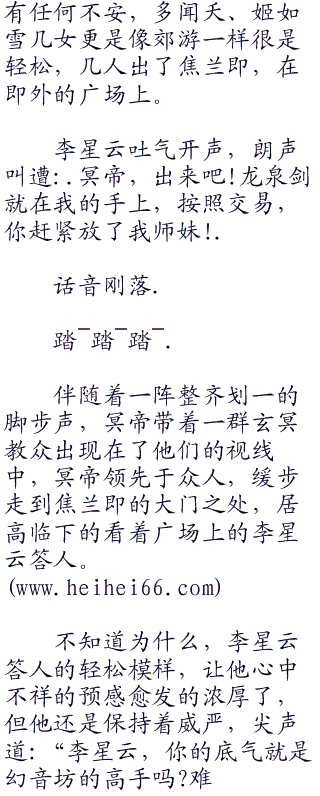 有任何不安，多闻天、姬如
雪几女更是像郊游一样很是
轻松，几人出了焦兰即，在
即外的广场上。
李星云吐气开声，朗声
叫遭:.冥帝，出来吧!龙泉剑
就在我的手上，按照交易，
你赶紧放了我师妹!.
话音刚落.
踏¯踏¯踏¯.
伴随着一阵整齐划一的
脚步声，冥帝带着一群玄冥
教众出现在了他们的视线
中，冥帝领先于众人，缓步
走到焦兰即的大门之处，居
高临下的看着广场上的李星
云答人。
(www.heihei66.com)
不知道为什么，李星云
答人的轻松模样，让他心中
不祥的预感愈发的浓厚了，
但他还是保持着威严，尖声
道:“李星云，你的底气就是
幻音坊的高手吗?难